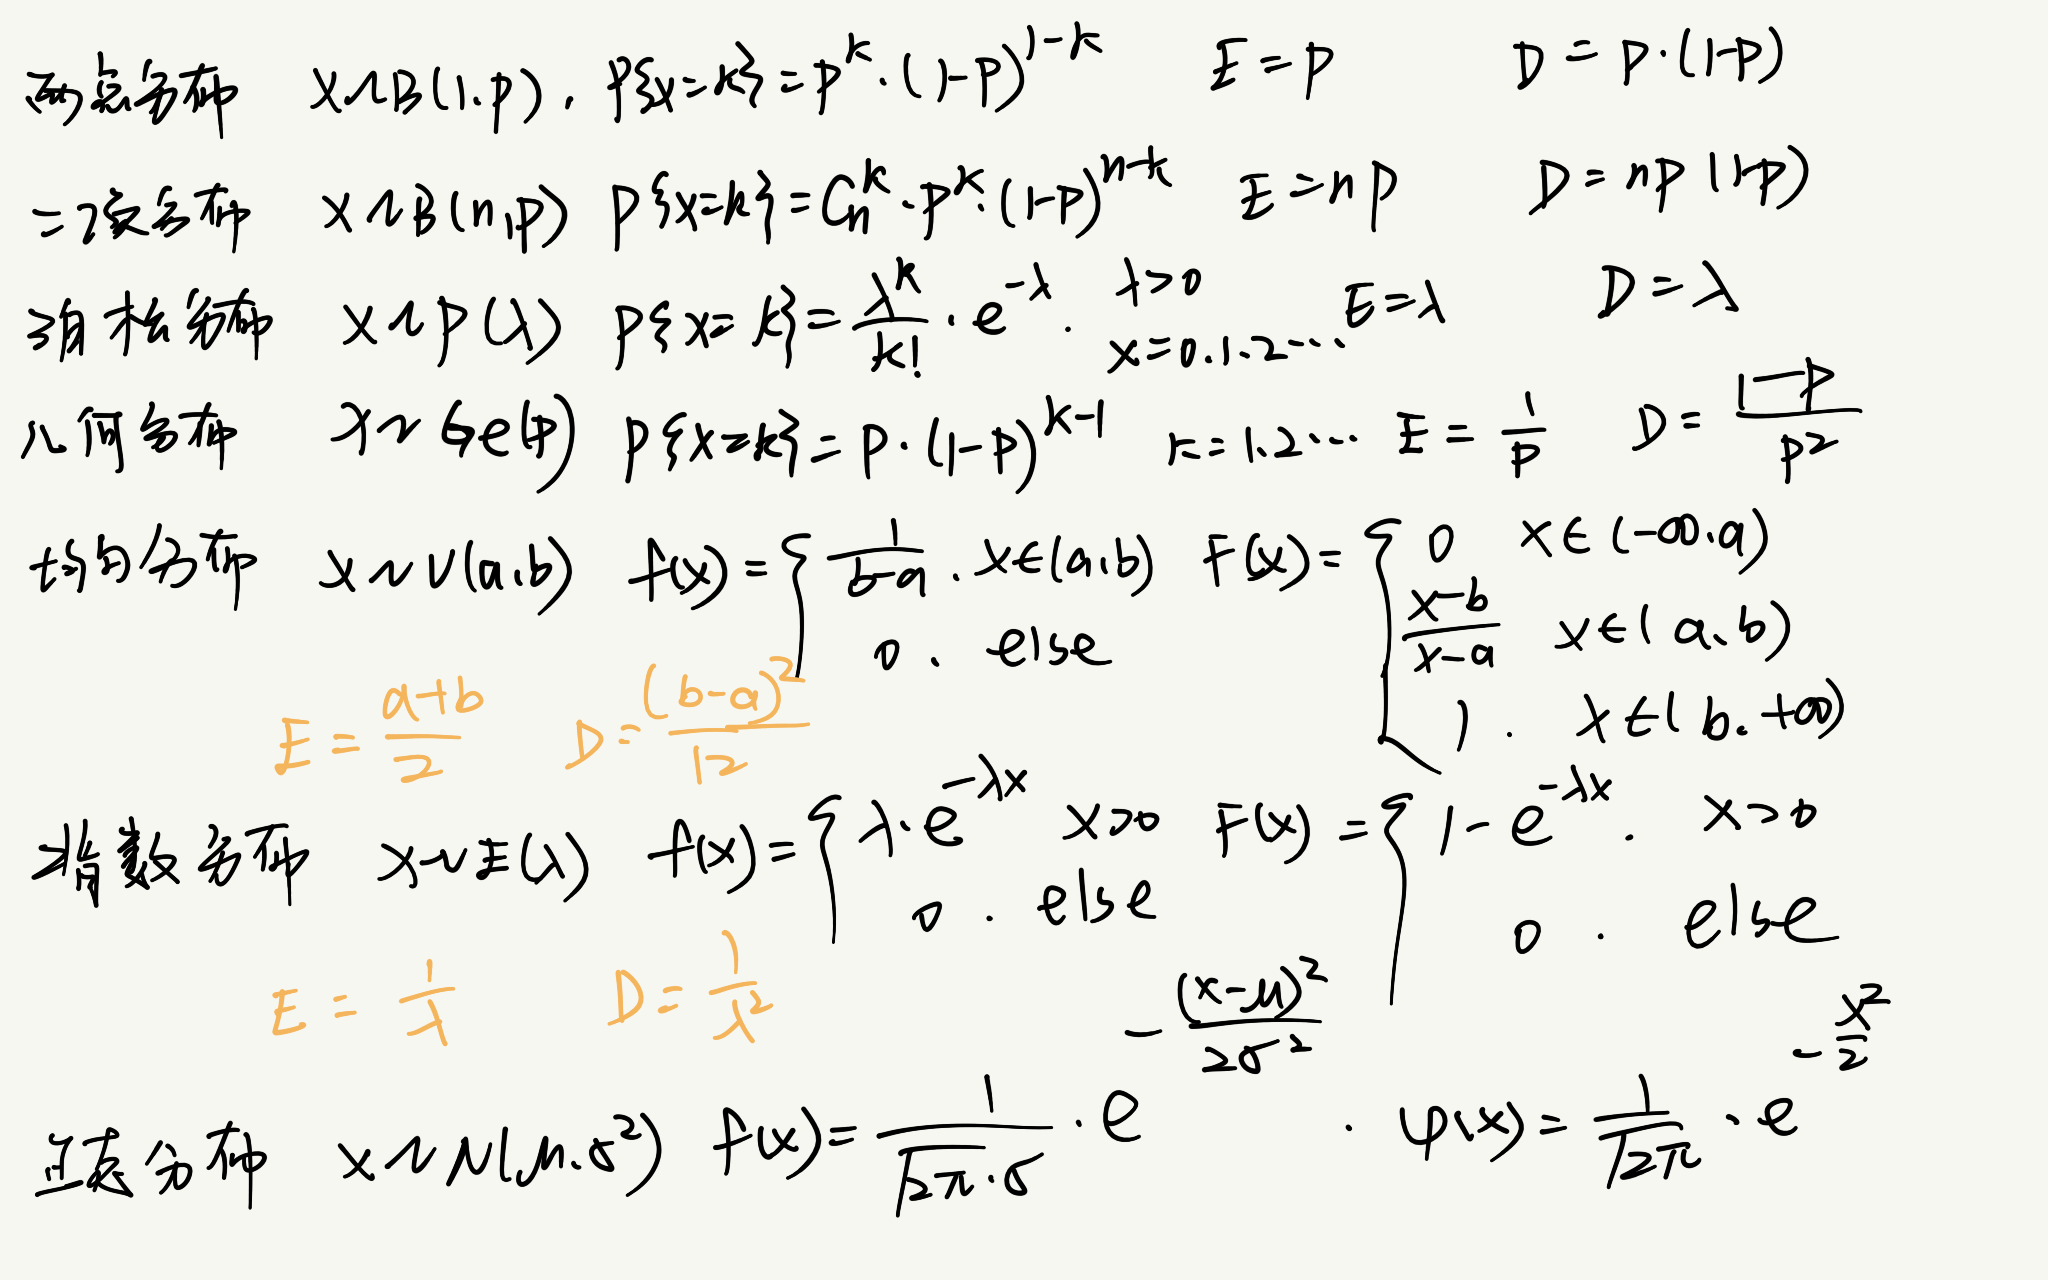 两点分布 X~B(1.p), P{x=k}=p^k·(1-p)^{1-k} E=p D=p·(1-p)
二项分布 X~B(n,p) P{x=k}=C_n^k·p^k·(1-p)^{n-k} E=np D=np(1-p)
泊松分布 X~P(λ) P{x=k}=\frac{λ^k}{k!}·e^{-λ}. λ>0 x=0.1.2··· E=λ D=λ
几何分布 X~Ge(p) P{x=k}=p·(1-p)^{k-1} k=1.2··· E=\frac{1}{p} D=\frac{1-p}{p^2}
均匀分布 X~U(a.b) f(x)={\frac{1}{b-a}. x∈(a.b) F(x)={0 x∈(-∞.a)
0. else \frac{x-b}{x-a} x∈(a.b)
E=\frac{a+b}{2} D=\frac{(b-a)^2}{12} 1. x∈(b.+∞)
指数分布 X~E(λ) f(x)={λ·e^{-λx} x>0 F(x)={1-e^{-λx}. x>0
0. else 0. else
E=\frac{1}{λ} D=\frac{1}{λ^2}
正态分布 X~N(μ.σ^2) f(x)=\frac{1}{\sqrt{2π}·σ}·e^{-\frac{(x-μ)^2}{2σ^2}}. φ(x)=\frac{1}{\sqrt{2π}}·e^{-\frac{x^2}{2}}